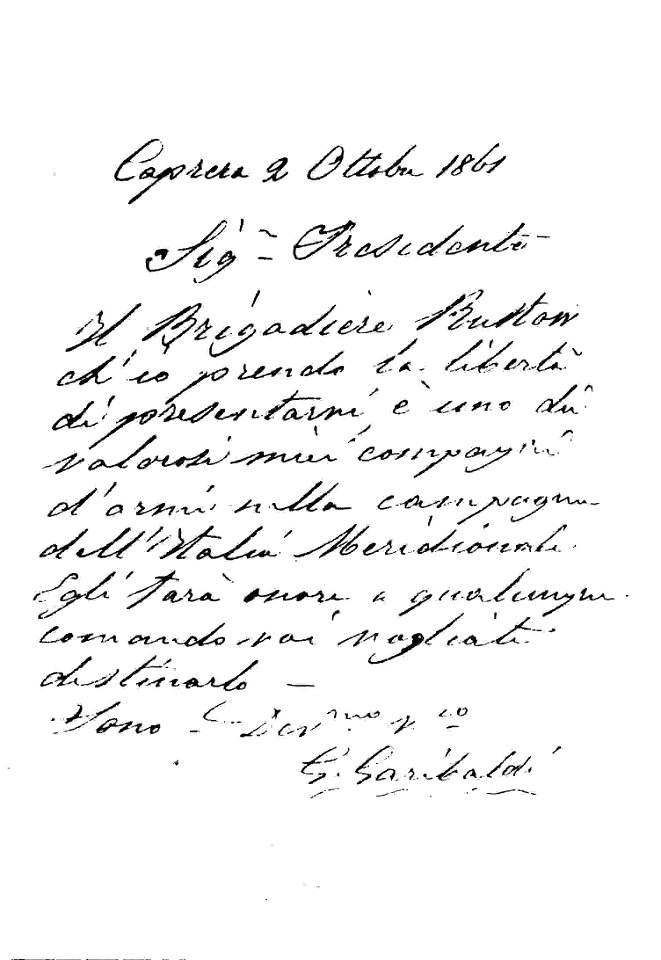 Caprera 2 Ottobre 1861
Sig.r Presidente
Il Brigadiere
ch'io prendo la libertà
di presentarvi, è uno dei
valorosi miei compagni
d'armi nella campagna
dell'Italia Meridionale.
Egli farà onore a qualunque
comando voi vogliate
destinarlo —
Sono — Dev.mo v.o
G. Garibaldi